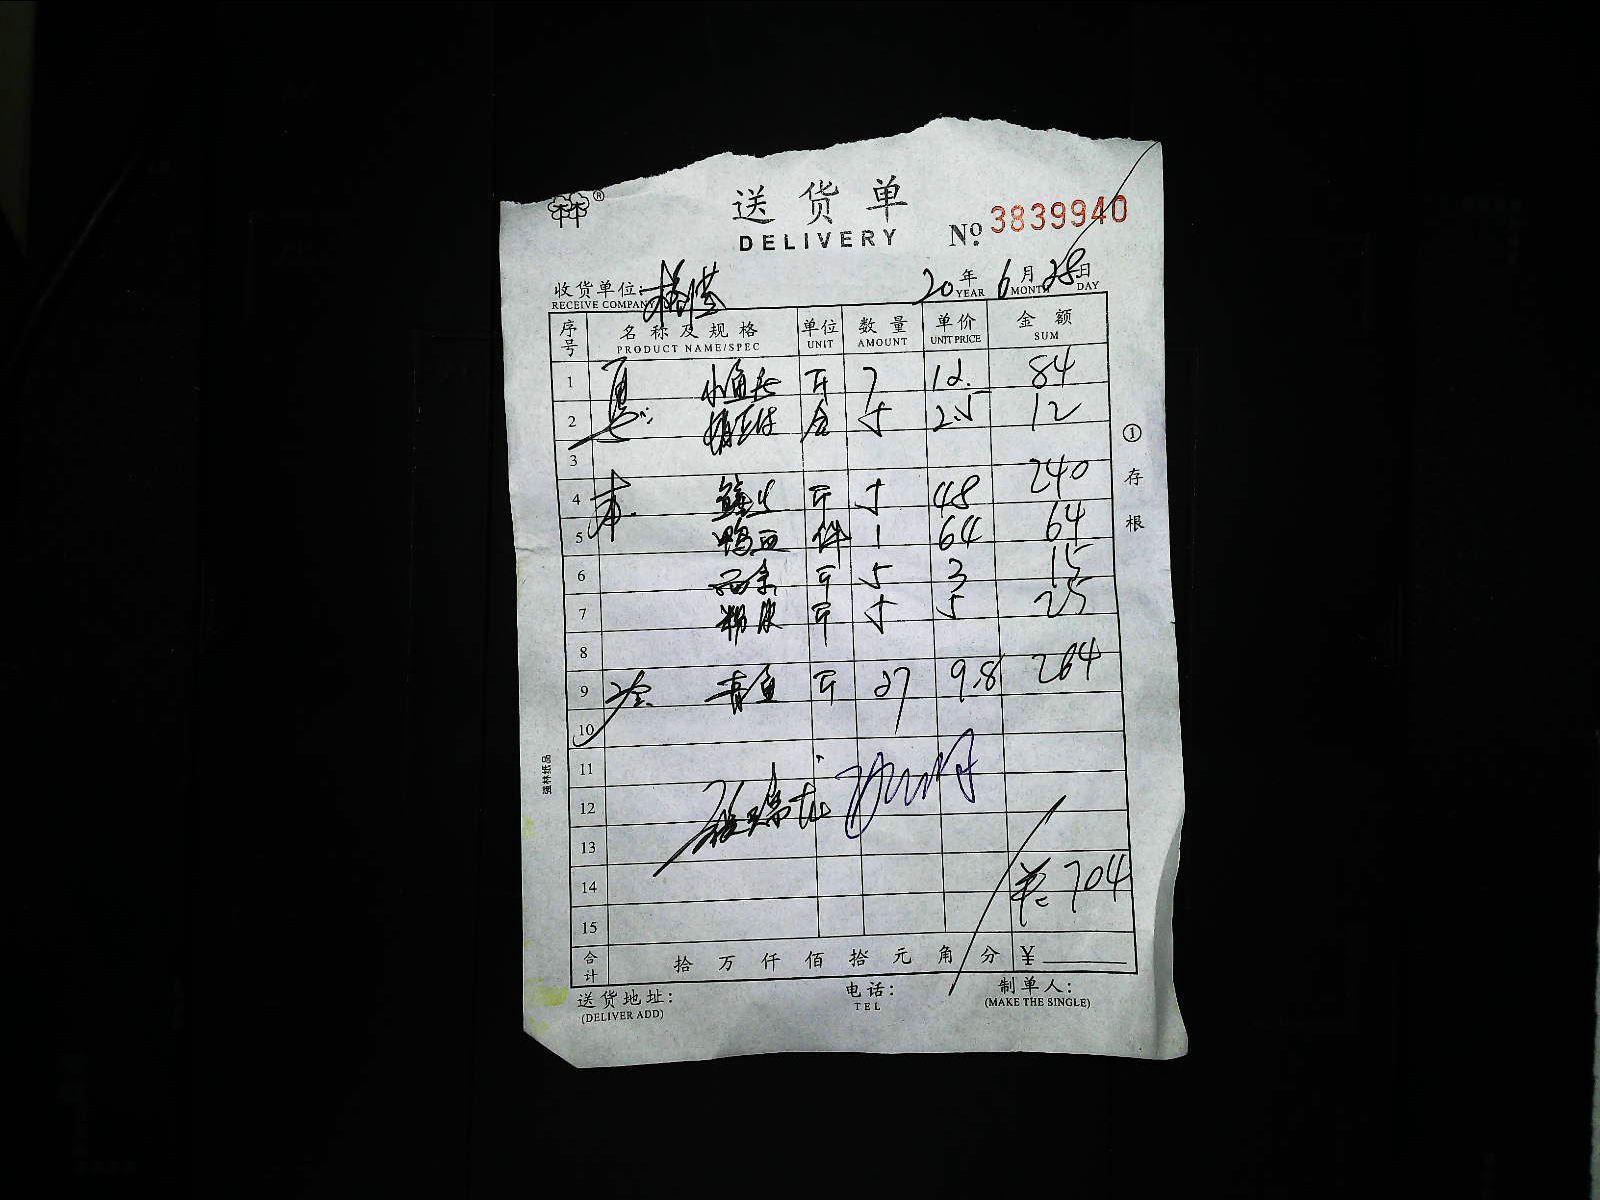 ®
送货单
DELIVERY
№ 3839940
收货单位:
RECEIVE COMPANY
20年 6月 28日
YEAR MONTH DAY
序号 名称及规格 单位 数量 单价 金额
PRODUCT NAME/SPEC UNIT AMOUNT UNIT PRICE SUM
1 小鱼 斤 7 12. 84
2 盒 5 2.5 12
3
4 斤 5 48 240
5 鸭血 件 1 64 64
6 斤 5 3 15
7 斤 5 5 25
8
9 青鱼 斤 27 9.8 264
10
11
12
13
14 ¥: 704
15
合计 拾 万 仟 佰 拾 元 角 分 ¥
送货地址: 电话: 制单人:
(DELIVER ADD) TEL (MAKE THE SINGLE)
① 存根